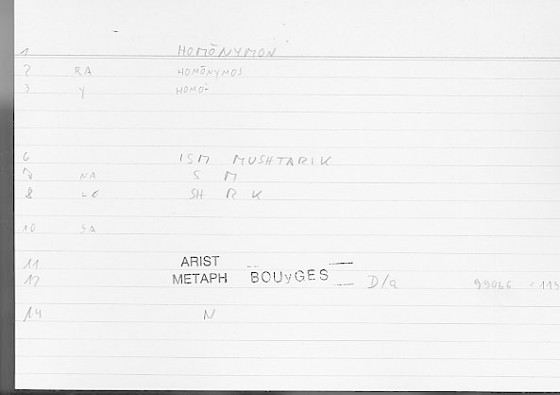 1 HOMŌNYMON
2 RA HOMŌNYMOS
3 Y HOMŌ-
6 ISM MUSHTARIK
7 NA S M
8 LE SH R K
10 SA
11 ARIST
12 METAPH BOUyGES D/a
14 N